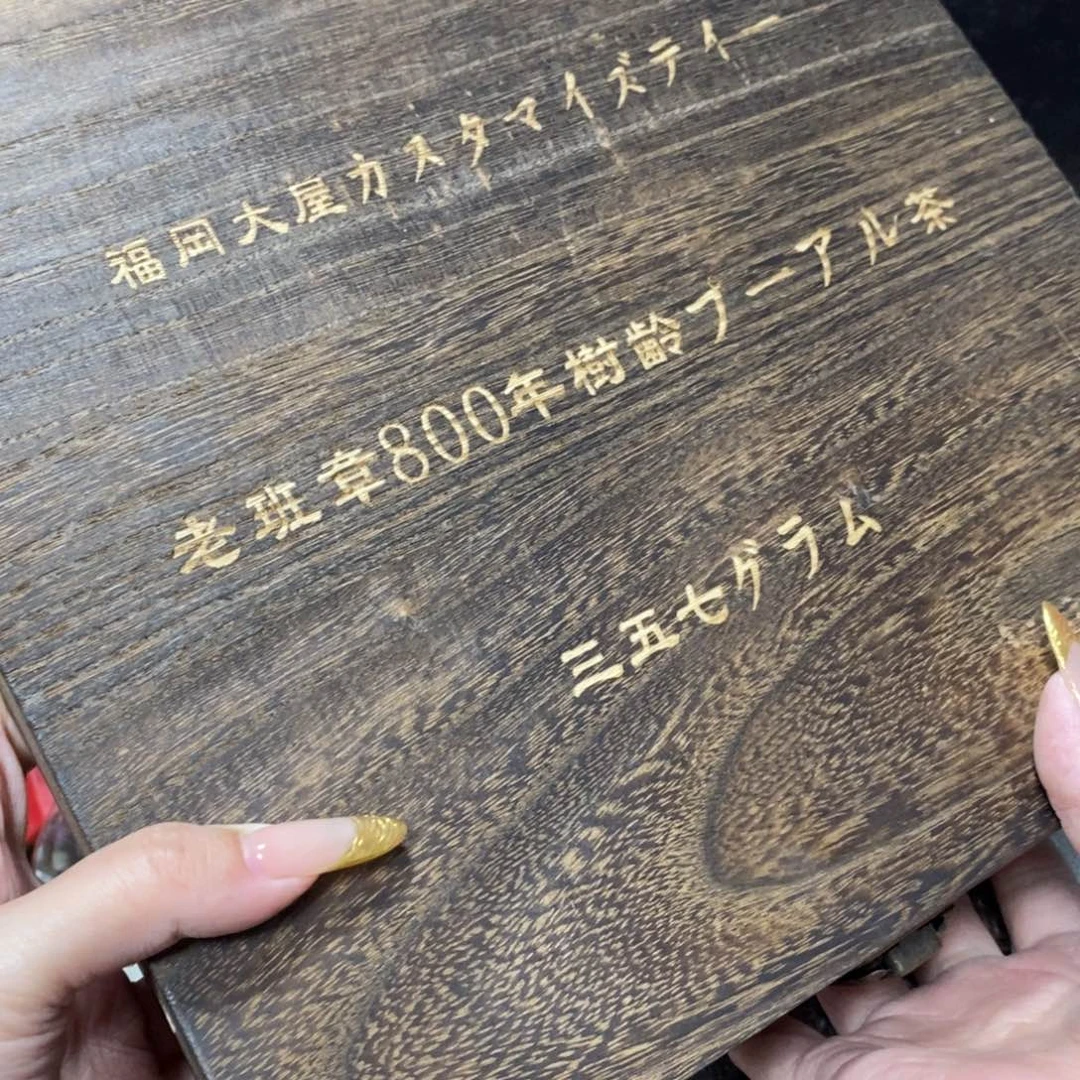 福岡大屋カスタマイズティー
老班章800年樹齢プーアル茶
三五七グラム